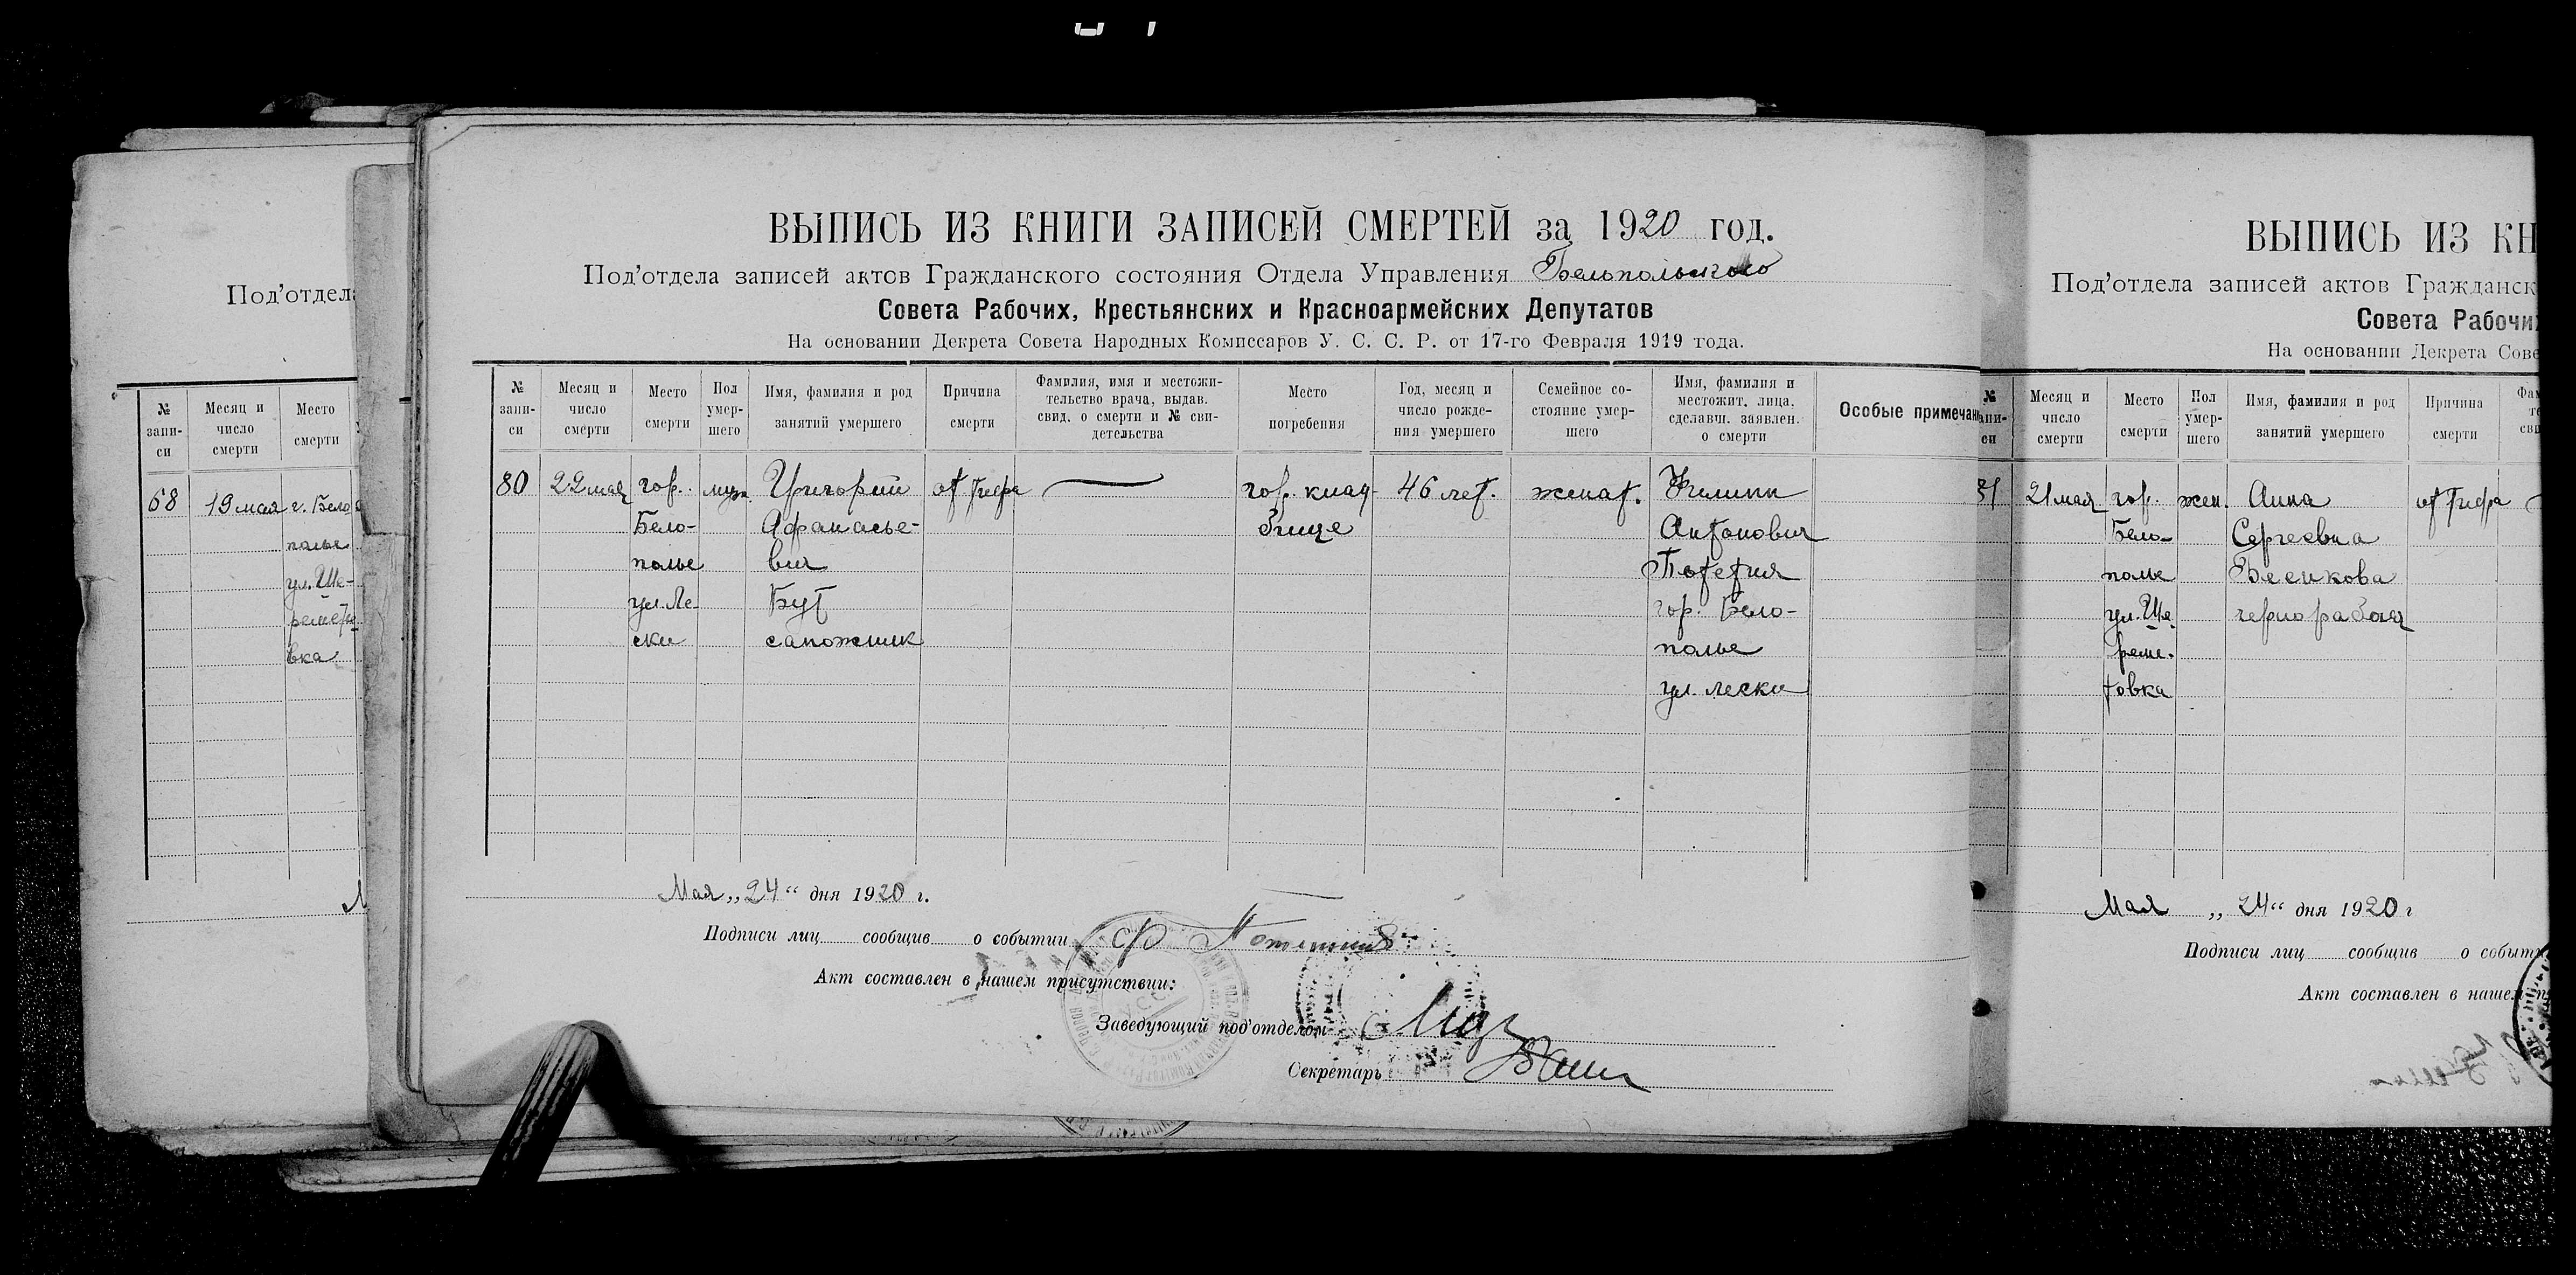 Под'отдела
№ записи
Месяц и число смерти
Место смерти
68 19 мая г. Бело
полье
ул. Ше-
реметь
вка
ВЫПИСЬ ИЗ КНИГИ ЗАПИСЕЙ СМЕРТЕЙ за 1920 год.
Под'отдела записей актов Гражданского состояния Отдела Управления Бельпольского
Совета Рабочих, Крестьянских и Красноармейских Депутатов
На основании Декрета Совета Народных Комиссаров У. С. С. Р. от 17-го Февраля 1919 года.
№ запи-
си
Месяц и
число
смерти
Место
смерти
Пол
умер-
шего
Имя, фамилия и род
занятий умершего
Причина
смерти
Фамилия, имя и местожи-
тельство врача, выдав.
свид. о смерти и № сви-
детельства
Место
погребения
Год, месяц и
число рожде-
ния умершего
Семейное со-
стояние умер-
шего
Имя, фамилия и
местожит. лица,
сделавш. заявлен.
о смерти
Особые примечан
80 22 мая гор. муж. Григорий от тифа гор. клад- 46 лет. женат. Филипп
Бело- Афанасье- бище Антонович
полье вич Потетня
ул. Ле- Бут гор. Бело-
ски сапожник полье
ул. лески
Мая „24“ дня 1920 г.
Подписи лиц сообщив о событии Ф
Акт составлен в нашем присутствии:
Заведующий под'отделом
Секретарь
ВЫПИСЬ ИЗ КН
Под'отдела записей актов Гражданск
Совета Рабочих
На основании Декрета Сове
№
запи-
си
Месяц и
число
смерти
Место
смерти
Пол
умер-
шего
Имя, фамилия и род
занятий умершего
Причина
смерти
81 21 мая гор. жен. Анна от тифа
Бело- Сергеевна
полье Бесикова
ул. Ше- чернорабочая
реме-
товка
Мая „24“ дня 1920 г
Подписи лиц сообщив о событи
Акт составлен в нашем п